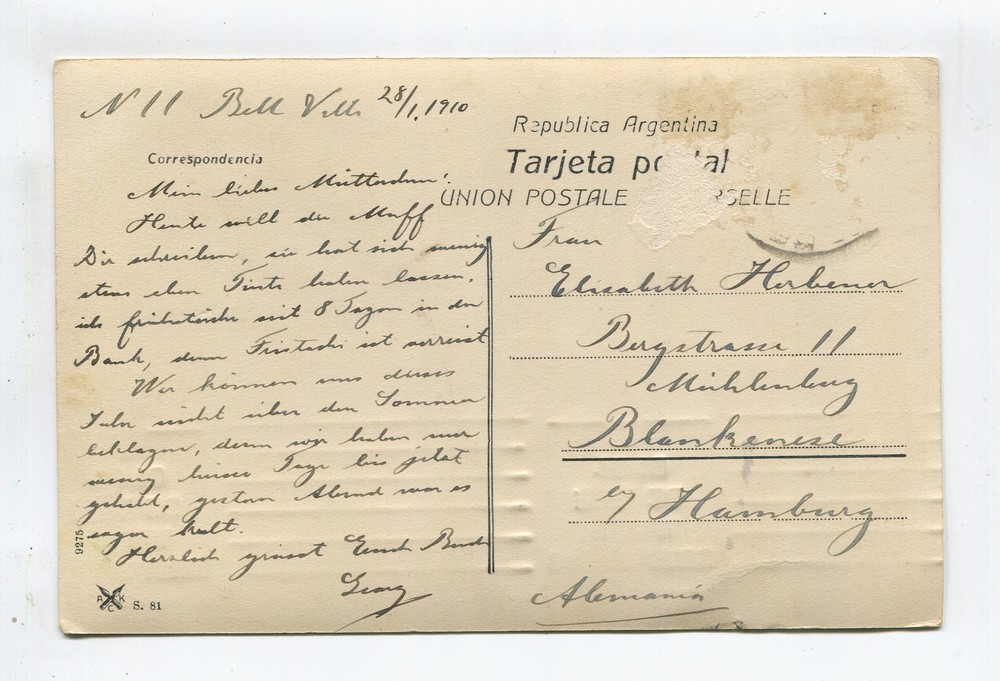 N 11 Bell Ville 28/1.1910
Republica Argentina
Correspondencia
Tarjeta postal
UNION POSTALE RSELLE
Mein liebes Mütterchen!
Heute will die Muff
Dir schreiben, sie hat sich wenig
etwas eben Tinte holen lassen,
ich frühstücke seit 8 Tagen in der
Bank, denn ist verreist
Wir können uns dieses
Jahr nicht über den Sommer
beklagen, denn wir haben nur
wenig heisse Tage bis jetzt
gehabt, gestern Abend war es
sogar kalt.
Herzlich grüsst Euch
Georg
Frau
Elisabeth Herbener
Bergstrasse 11
Mühlenberg
Blankenese
b/ Hamburg
Alemania
9275
S. 81